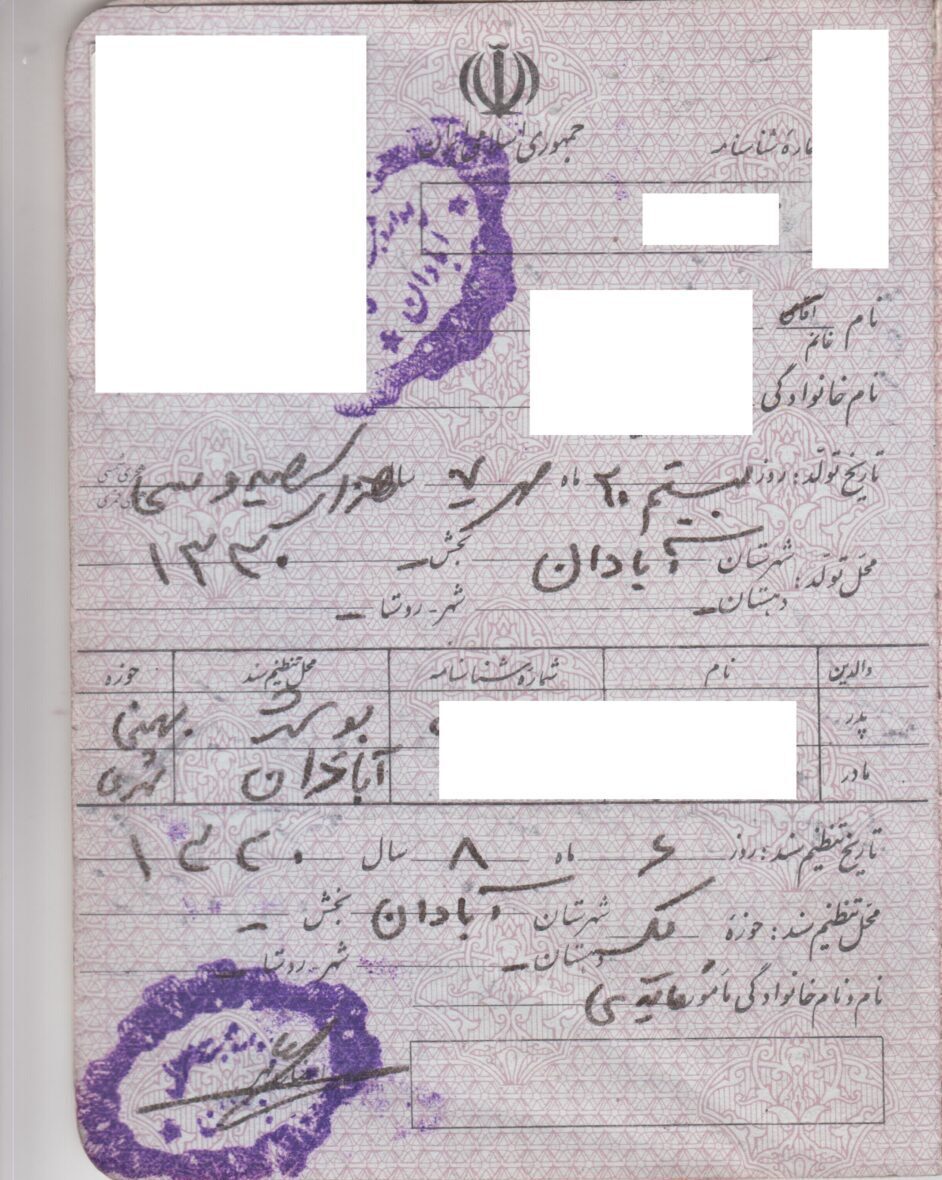 جمهوری اسلامی ایران
شمارهٔ شناسنامه
نام آقای
خانم
نام خانوادگی
تاریخ تولد: روز بیستم ۲۰ ماه مهر ۷ سال هزار سیصد و سی
هجری شمسی
هجری قمری
محل تولد: شهرستان آبادان بخش - ۱۳۳۰
دهستان - شهر - روستا -
والدین نام شماره شناسنامه محل تنظیم سند حوزه
پدر بوشهر بهمنی
مادر آبادان
تاریخ تنظیم سند: روز ۶ ماه ۸ سال ۱۳۳۰
محل تنظیم سند: حوزهٔ یک شهرستان آبادان بخش -
دهستان - شهر - روستا -
نام و نام خانوادگی مأمور
آبادان